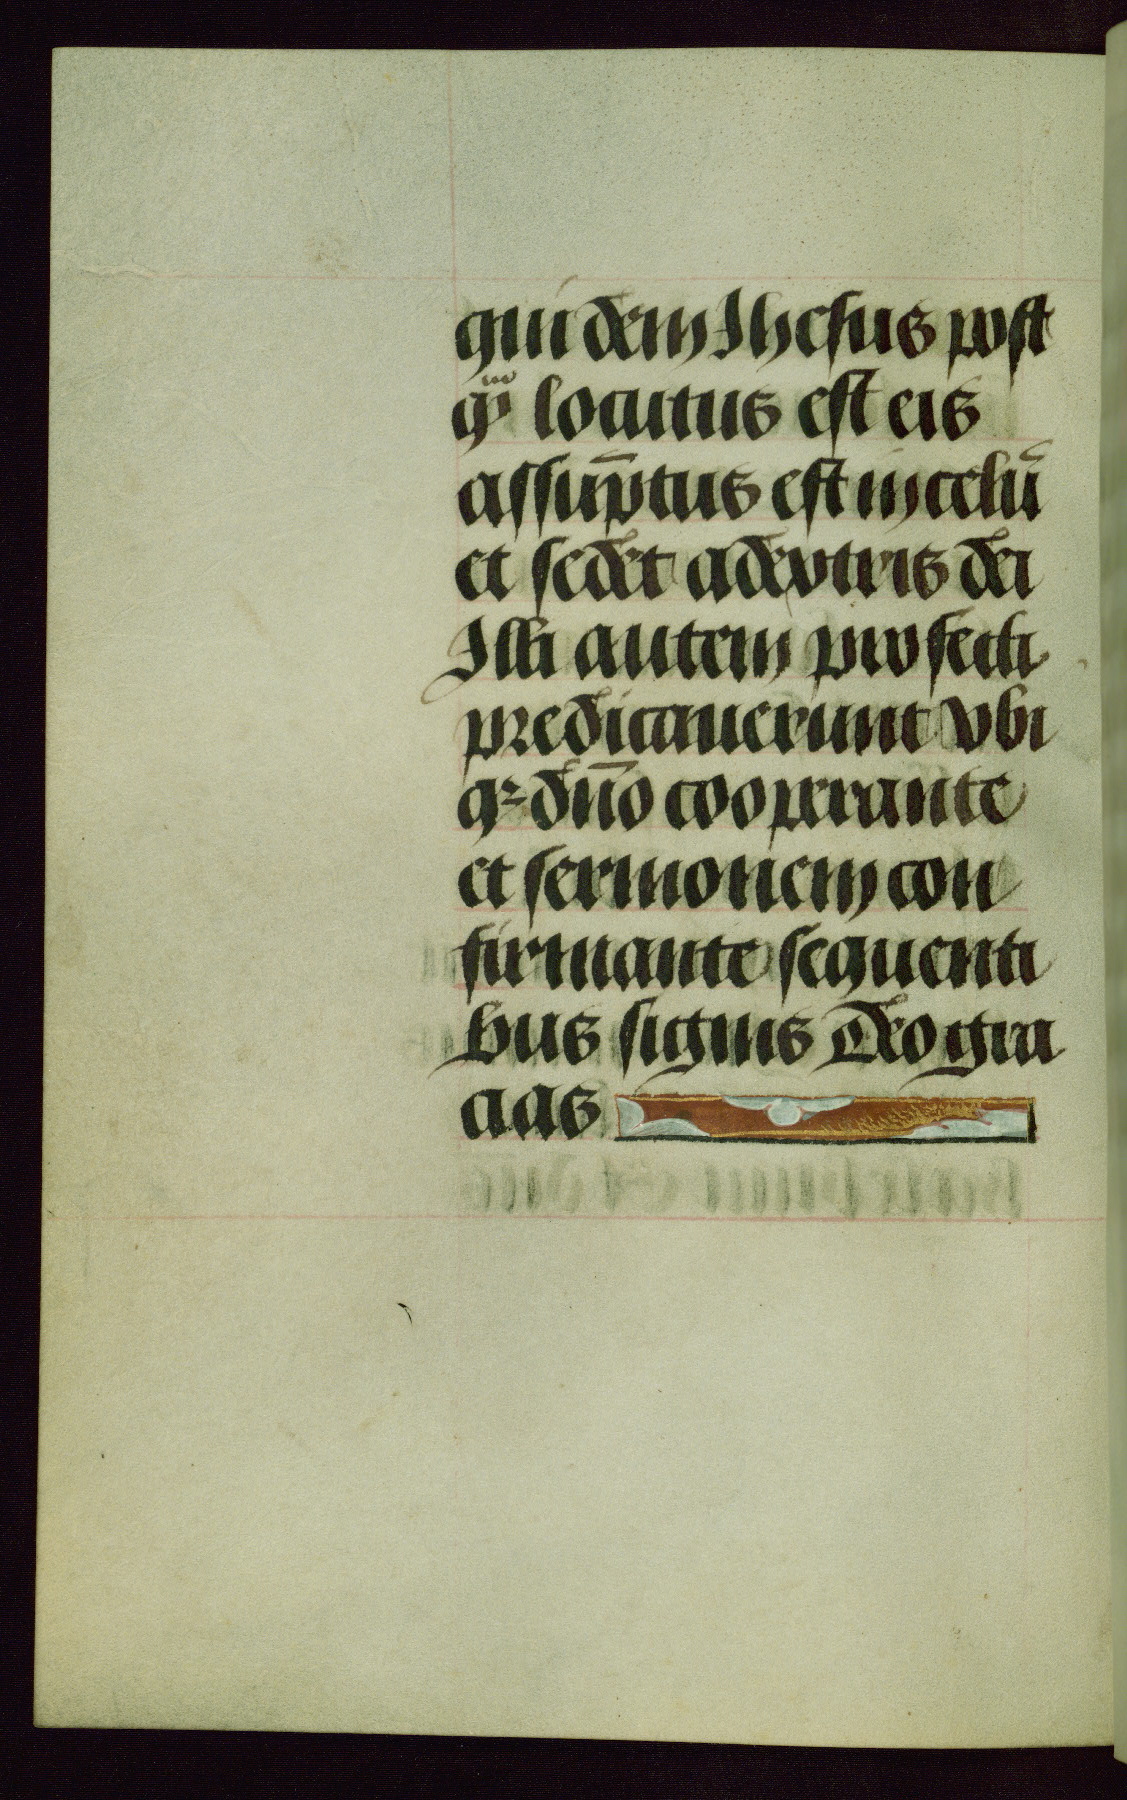 quidem Ihesus post
qͣ locutus est eis
assup̄tus est in celū
et sedet a dextris dei
Illi autem profecti
predicauerunt vbi
qꝫ dn̄o cooperante
et sermonem con
firmante sequenti
bus signis Deo gra
cias